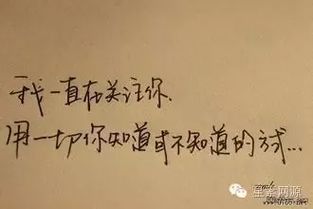 我一直在关注你.
用一切你知道或不知道的方式...
星繁网源